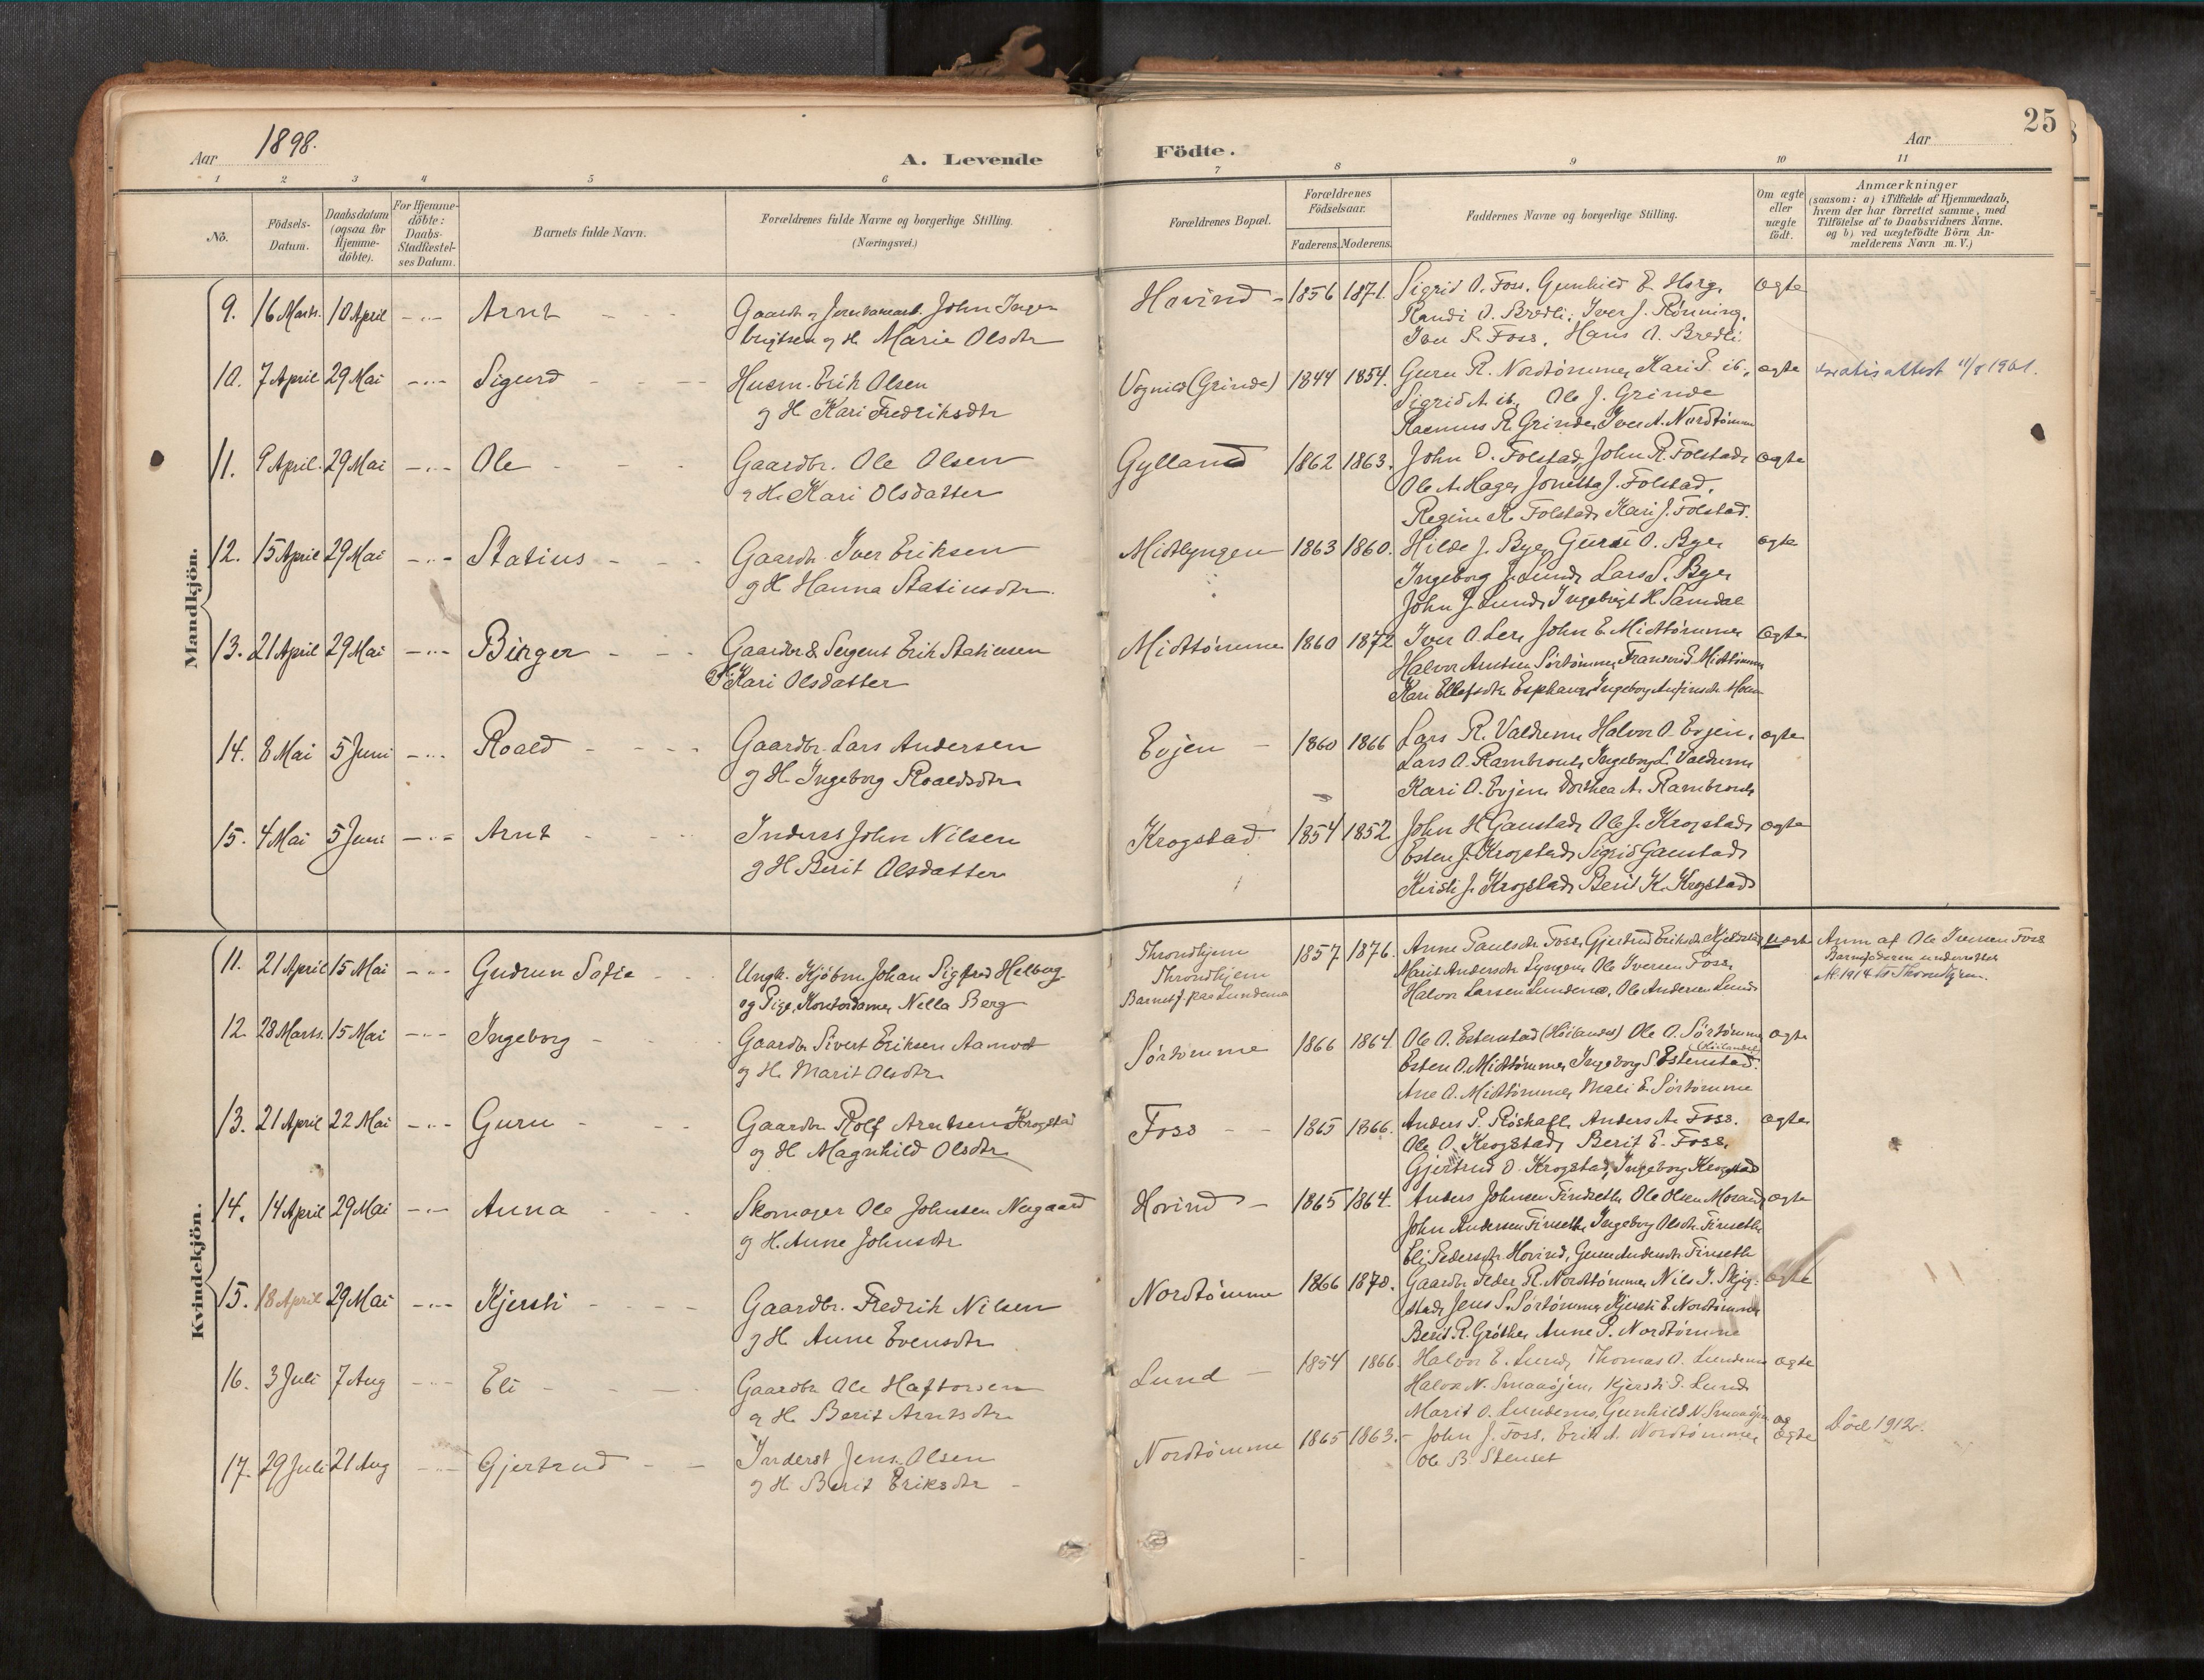 Aar 1898.
A. Levende
Födte.
Aar
25
1 2 3 4 5 6 7 8 9 10 11
Nö.
Födsels-
Datum.
Daabsdatum
(ogsaa for
Hjemme-
döbte).
For Hjemme-
döbte:
Daabs-
Stadfæstel-
ses Datum.
Barnets fulde Navn.
Forældrenes fulde Navne og borgerlige Stilling.
(Næringsvei.)
Forældrenes Bopæl.
Forældrenes
Födselsaar.
Faderens. Moderens.
Faddernes Navne og borgerlige Stilling.
Om ægte
eller
uægte
födt.
Anmærkninger
(saasom: a) i Tilfælde af Hjemmedaab,
hvem der har forrettet samme, med
Tilföielse af to Daabsvidners Navne.
og b) ved uægtefödte Börn An-
melderens Navn m. V.)
Mandkjön.
9. 16 Marts. 10 April Arnt
John Inge-
brigtsen og H. Marie Olsdtr
Hovind 1856 1871.
Sigrid O. Foss, Gunhild E. Horg,
Randi O. Bredli, Iver J. Rönning,
Iver P. Foss, Hans O. Bredli
ægte
10. 7 April 29 Mai Sigurd
Husm. Erik Olsen
og H. Kari Fredriksdtr
Vognild (Grinde) 1844 1854.
Guru R. Nordtömme, Kari E. ib.,
Sigrid A. ib., Ole J. Grinde
Rasmus R. Grinde, Iver A. Nordtömme
ægte
attest 11/8 1901.
11. 9 April. 29 Mai Ole
Gaardbr. Ole Olsen
og H. Kari Olsdatter
Gylland 1862 1863.
John O. Folstad, John R. Folstad,
Ole A. Hage, Jonetta J. Folstad,
Regine R. Folstad, Kari J. Folstad.
ægte
12. 15 April 29 Mai Statius
Gaardb. Iver Eriksen
og H. Hanna Statiusdtr.
Midtlyngen 1863 1860.
Hilde J. Bye, Guru O. Bye,
Ingeborg J. Lund, Lars S. Bye,
John J. Lund, Ingebrigt H. Samdal
ægte
13. 21 April 29 Mai Birger
Gaardbr & Sergent Erik Statiusen
& H. Kari Olsdatter
Midttömme 1860 1872
Iver O. Ler, John E. Midttömme,
Halvor Arntsen Sörtömme, E. Midttömme
Kari Ellefsdtr Esphaug, Ingeborg
ægte
14. 8 Mai 5 Juni Roald
Gaardbr. Lars Andersen
og H. Ingeborg Roaldsdtr
Evjen 1860 1866
Lars R. Valdum, Halvor O. Evjen,
Lars O. Rambraut, Ingeborg L. Valdum
Kari O. Evjen, Dorthea A. Rambraut
ægte
15. 4 Mai 5 Juni Arnt
Inderst John Nilsen
og H. Berit Olsdatter
Krogstad 1854 1852.
John H. Gaustad, Ole J. Krogstad,
Esten J. Krogstad, Sigrid Gaustad,
Kirsti J. Krogstad, Berit K. Krogstad
ægte
Kvindekjön.
11. 21 April 15 Mai Gudrun Sofie
Ungk. Kjöbm. Johan Sigfred Helbug
og Pige, Kontordame, Nella Berg
Throndhjem
Throndhjem
Barnet f. paa Lundemo
1857 1876.
Anne Paulsdtr Foss, Gjertrud Eriksdtr
Marit Andersdtr Lyngen, Ole Iversen Foss,
Halvor Larsen Lundemo, Ole Andersen Lund
uægte
Anm af Ole Iversen Foss
Barnefaderen underrettet
1914 Throndhjem.
12. 28 Marts. 15 Mai Ingeborg
Gaardb. Sivert Eriksen Aamot
og H. Marit Olsdtr.
Sörtömme 1866 1864.
Ole O. Estenstad (Höilandet) Ole O. Sörtömme
Esten O. Midttömme, Ingeborg S. Estenstad.
Ane O. Midttömme, Mali E. Sörtömme
ægte
13. 21 April 22 Mai Guru
Gaardbr Rolf Arntsen Krogstad
og H. Magnhild Olsdtr
Foss 1865 1866.
Anders P. Röskaft, Anders A. Foss.
Ole O. Krogstad, Berit E. Foss,
Gjertrud O. Krogstad, Ingeborg Krogstad
ægte
14. 14 April 29 Mai Anna
Skomager Ole Johnsen Nygaard
og H. Anne Johnsdtr
Hovind 1865 1864.
Anders Johnsen Finseth, Ole Olsen
John Andersen Finseth, Ingeborg Olsdtr. Finseth
Eli Pedersdtr Hovind, Guru Andersdtr Finseth
ægte
15. 18 April 29 Mai Kjersti
Gaardbr. Fredrik Nilsen
og H. Anne Evensdtr
Nordtömme 1866 1870.
Gaardbr. Peder R. Nordtömme, Nils J. Skjeg-
stad, Jens S. Sörtömme, Kjersti E. Nordtömme
Berit R. Gröthe, Anne P. Nordtömme
ægte
16. 3 Juli 7 Aug Eli
Gaardbr Ole Haftorsen
og H. Berit Arntsdtr.
Lund 1854 1866.
Halvor E. Lund, Thomas O. Lundemo
Halvor N. Smaaöjen, Kjersti P. Lund
Marit O. Lundemo, Gunhild N. Smaaöjen
ægte
17. 29 Juli 21 Aug Gjertrud
Inderst Jens Olsen
og H. Berit Eriksdtr
Nordtömme 1865 1863.
John J. Foss, Erik A. Nordtömme,
Ole B. Stenset
ægte
Död 1912.